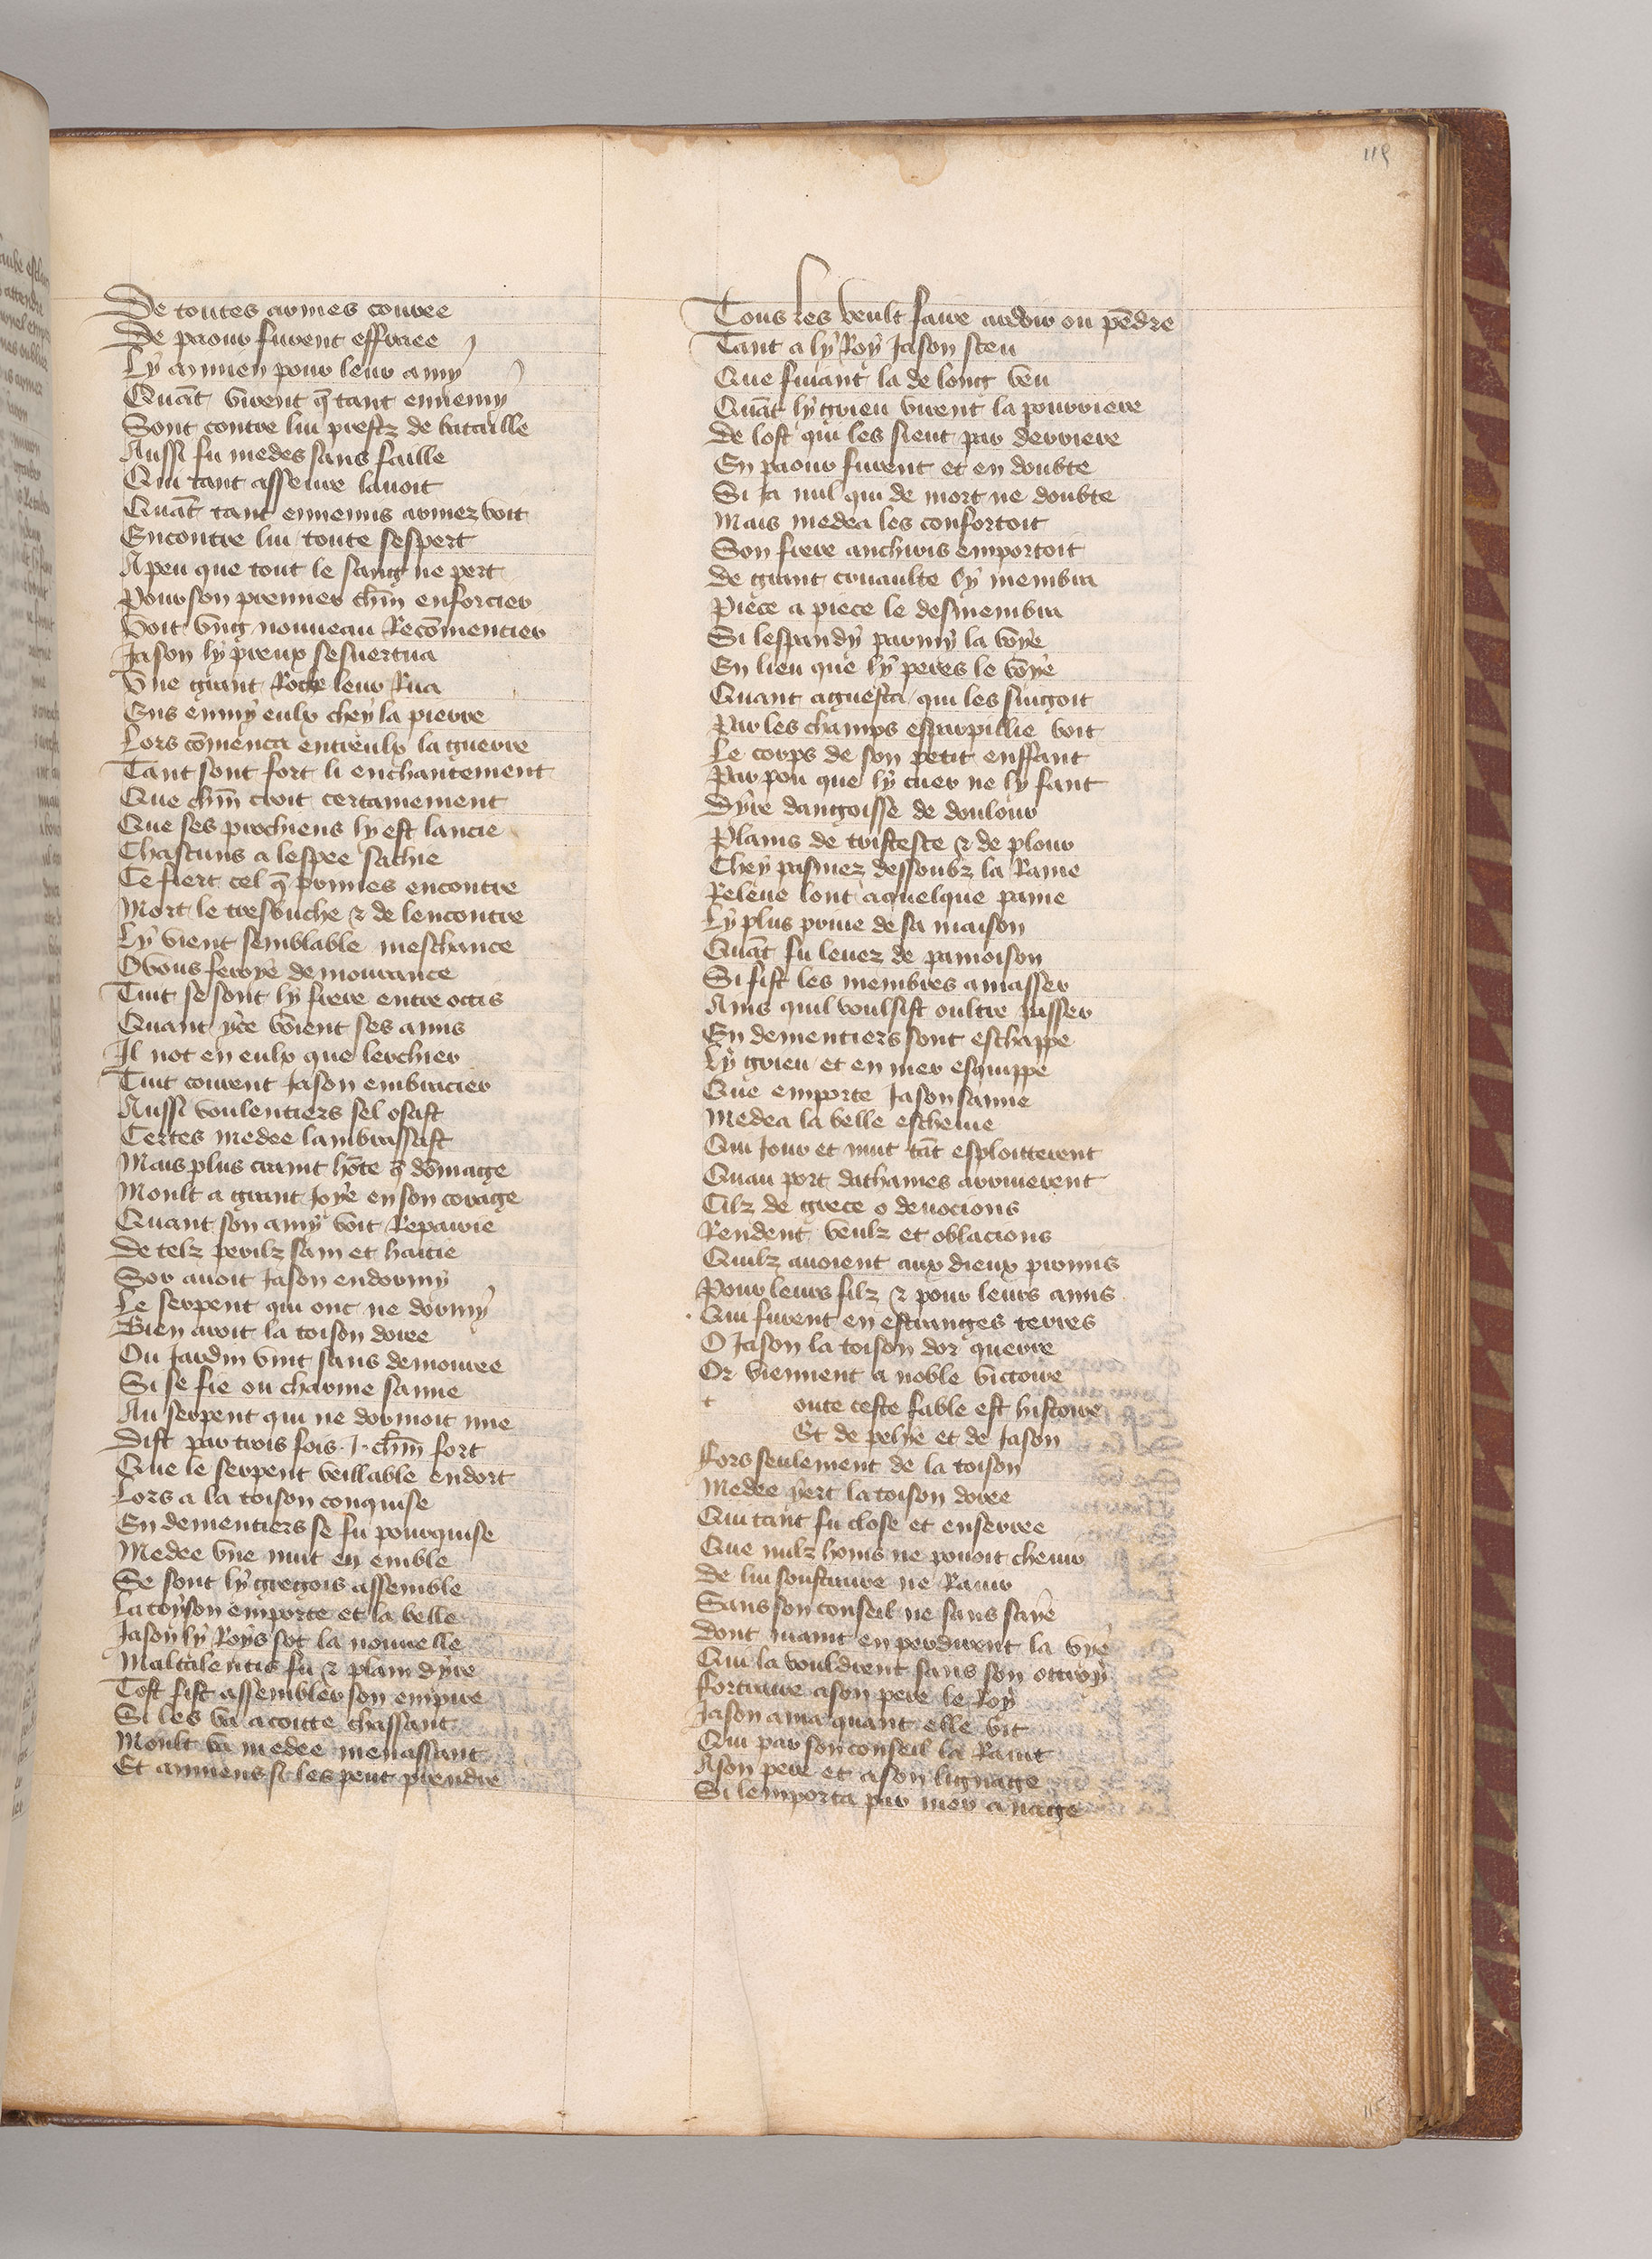 119
De toutes armes couree
De paour furent effraee
Ly annien pour leur amy
Quāt virent q̄ tant ennemy
Sont contre lui prestz de bataille
Aussi fu medes sans faille
Qui tant asseure lauoit
Quāt tant ennemis armez voit
Encontre lui toute sespert
A peu que tout le sang ne pert
Pour son premier chm̄ enforcier
Voit vng nouueau Recōmencier
Jason ly preux sesuertua
Vne grant Roche leur Rua
Ens enmy eulx chey la pierre
Lors cōmenca entreulx la guerre
Tant sont fort li enchantement
Que chm̄ croit certainement
Que ses prochiens ly est lancie
Chascuns a lespee sachie
Ce fiert cel q̄ primes encontre
Mort le tresbuche & de lencontre
Ly vient semblable meschance
O vous feroye demourance
Tuit se sont ly frere entre occis
Quant yce voient ses amis
Il not en eulx que leechier
Tuit courent Jason embracier
Aussi voulentiers sel osast
Certes medee lambrassast
Mais plus craint hōte q̄ dōmage
Moult a grant Joye en son corage
Quant son amy voit Repairie
De telz perilz sain et haitie
Sor auoit Jason endormy
Le serpent qui onc ne dormy
Bien aroit la toison doree
Ou Jardin vint sans demouree
Si se fie ou charme sanne
Au serpent qui ne dormoit mie
Dist par trois fois .J. chm̄ fort
Que le serpent veillable endort
Lors a la toison conquise
En dementiers se fu pourquise
Medee vne nuit en emble
Se sont ly gregois assemble
La toyson emporte et la belle
Jason ly Roys sot la nouuelle
Maltalentis fu & plain dyre
Tost fist assembler son empire
Si les va acoitte chassant
Moult va medee menassant
Et anniens si les peut prendre
Tous les veult faire ardoir ou pēdre
Tant a ly Roy Jason sceu
Que fuiant la de long veu
Quāt ly grieu virent la pourriere
De lost qui les sieut par derriere
En paour furent et en doubte
Si ja nul qui de mort ne doubte
Mais medea les confortoit
Son frere anchiris emportoit
De grant cruaulte ly membra
Piece a piece le desmembra
Si lespandy parmy la voye
En lieu que ly peres le voye
Quant aguesta qui les suigoit
Par les champs esparpillie voit
Le corps de son petit enffant
Par pou que ly cuer ne ly fant
Dyre dangoisse de doulour
Plains de tristesce & de plour
Chey pasmez dessoubz la Rame
Releue lont a quelque paine
Ly plus priue de sa maison
Quāt fu leuez de pamoison
Si fist les membres amasser
Ains quil voulsist oultre passer
En dementiers sont eschappe
Ly grieu et en mer esquippe
Que emporte Jason sanne
Medea la belle escheuie
Qui Jour et nuit tāt esploitterent
Quau port dathaines arriuerent
Cilz de grece o deuocions
Rendent veulz et oblacions
Quilz auoient aux dieux promis
Pour leurs filz & pour leurs amis
Qui furent en estranges terres
O Jason la toison dor querre
Or viennent a noble victoire
t oute ceste fable est histoire
Et de pelye et de Jason
Fors seulement de la toison
Medee yert la toison doree
Qui tant fu close et enserree
Que nulz homs ne pouoit cheuir
De lui soustraire ne Rauir
Sans son conseil ne sans sa vie
Dont maint en perdirent la vye
Qui la vouldrent sans son ottroy
Fortraire a son pere le Roy
Jason ama quant elle vit
Qui par son conseil la Rauit
A son pere et a son lignage
Si lemporta par mer a nage
115